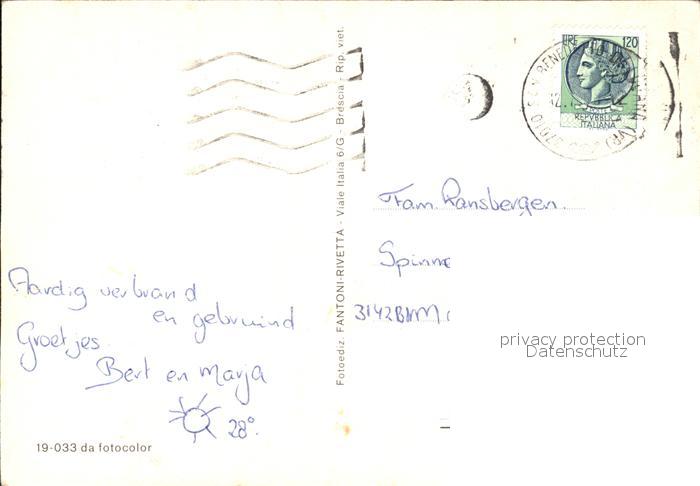 LIRE 120
REPVBBLICA
ITALIANA
Fotoediz. FANTONI-RIVETTA - Viale Italia 6/G - Brescia - Rip. viet.
Fam. Ransbergen.
Spinne
3142BM
Aardig verbrand
en gebruind
Groetjes
Bert en Marja
28°.
19-033 da fotocolor
privacy protection
Datenschutz